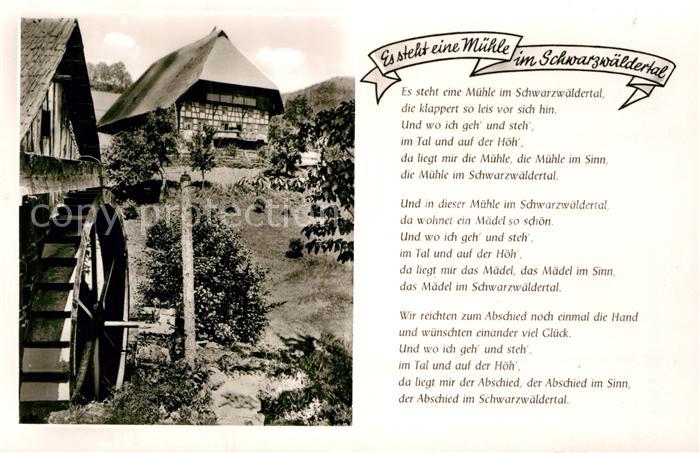 Es steht eine Mühle im Schwarzwäldertal
Es steht eine Mühle im Schwarzwäldertal,
die klappert so leis vor sich hin.
Und wo ich geh' und steh',
im Tal und auf der Höh',
da liegt mir die Mühle, die Mühle im Sinn,
die Mühle im Schwarzwäldertal.
Und in dieser Mühle im Schwarzwäldertal,
da wohnet ein Mädel so schön.
Und wo ich geh' und steh',
im Tal und auf der Höh',
da liegt mir das Mädel, das Mädel im Sinn,
das Mädel im Schwarzwäldertal.
Wir reichten zum Abschied noch einmal die Hand
und wünschten einander viel Glück.
Und wo ich geh' und steh',
im Tal und auf der Höh',
da liegt mir der Abschied, der Abschied im Sinn,
der Abschied im Schwarzwäldertal.
copy protection